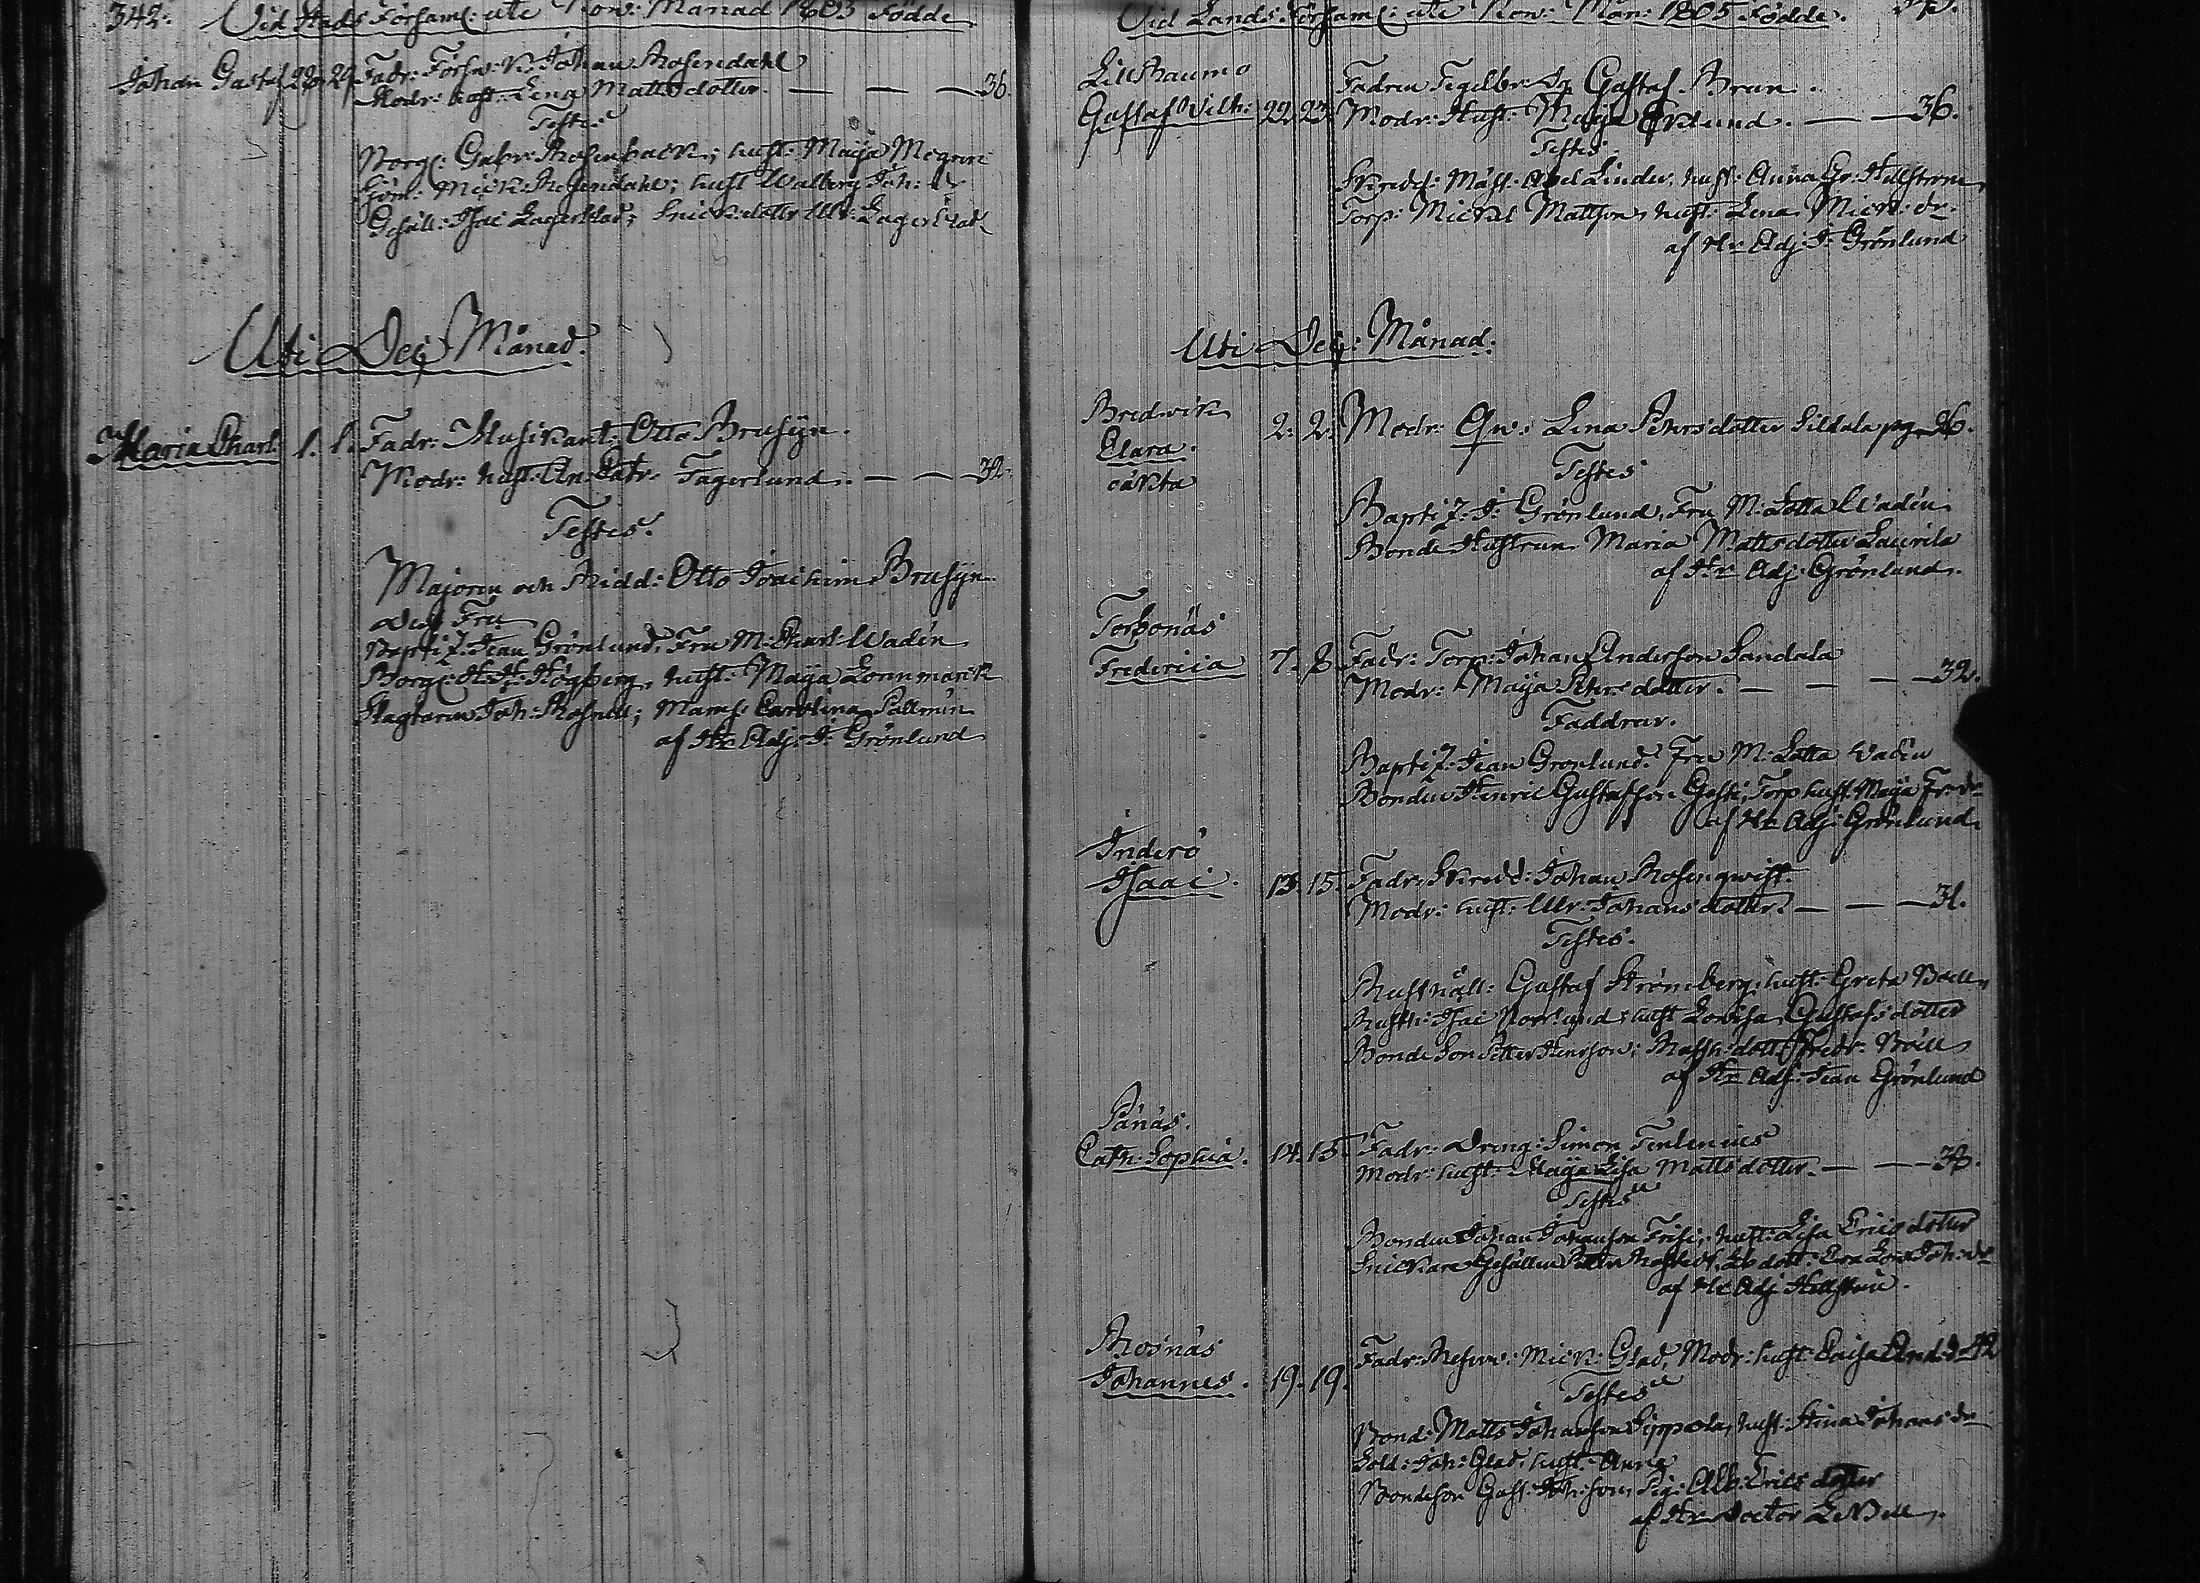 342. Wid Stads Församl: uti Nov: Månad 1805 Födde
Johan Gustaf 28 29 Fadr: Försw: K. Johan Rosendahl
Modr: hust: Lena Mattsdotter. — — — 36.
Testes
Borg: Gabr: Rosenback; hust: Maija
Mick: Rosendahl; hust Walborg Joh: dr
Gesäll: Isac Lagerblad; Ulr: Lagerblad
Uti Dec: Månad.
Maria Charl: 1. 1. Fadr: Musikant: Otto Brusijn.
Modr: hust: An: Catr: Fagerlund. — — — 32.
Testes.
Majoren och Ridd: Otto Joachim Brusijn
dess Fru
Jean Grönlund, Fru M: Charl: Wadén
Borg: H: H: Högberg, hust: Maija Lönnmarck
Joh: Mams: Carolina Pallmén
af Hr Adj: J: Grönlund
Wid Lands Församl: uti Nov: Mån: 1805 Födde.
Lill Raumo
Gustaf Wilh: 22. 23. Fadren Tegelbr: Dr Gustaf Brun.
Modr: Hust: Maija Eklund. — — 36.
Testes.
Skredd: Mäst: Abel Linder, hust: Anna Gr: Hellström
Torp: Mickel Mattson, hust: Lena Mick: dr.
af Hr Adj: J: Grönlund
Uti Dec: Månad.
Bredwik
Clara. 2. 2. Modr: Qw: Lina Pehrsdotter 26.
oäkta
Testes
J: Grönlund, Fru M: Lotta Wadén
Bonde Hustrun Maria Mattsdotter Laurila
af Hr Adj: Grönlund.
Torsonäs
Fredericia 7. 8. Fadr: Torp: Johan Anderson Sandala
Modr: Maija Pehrsdotter. — — — 32.
Faddrar.
Jean Grönlund. Fru M: Lotta Wadén
Bonden Henric Gustafsson Torp hust: Maija Fredr:
af Hr Adj: Grönlund.
Inderö
Isaac. 13. 15. Fadr: Skredd: Johan Rosenqwist
Modr: hust: Ulr: Johansdotter. — — — 31.
Testes.
Rusthåll: Gustaf Strömberg, hust: Greta
Rusth: Isac Norrlund, hust Lowisa Gustafsdotter
Bonde Son Petter Henrson; Rusth: dott: Fredr:
af Hr Adj: Jean Grönlund
Pänäs.
Cath: Sophia. 14. 15. Fadr: Dreng: Simon Tenlenius
Modr: hust: Maija Lisa Mattsdotter. — — — 38.
Testes
Bonden Johan Johanson Frisi, hust: Lisa Ericsdotter
Snickare Gesällen Petter Eva Lovis Joh: dr
af Hr Adj: Hellström.
Rosnäs
Johannes. 19. 19. Fadr: Reserv: Mick: Glad, Modr: hust: Caisa And: d 42
Testes
Bond: Matts Johanson Sippola, hust: Stina Johans dr
Sold: Joh: Glad, hust: Anna
Bondeson Gust: Joh: son, Pig: Alb: Ericsdotter
af Hr Doctor Lebell.